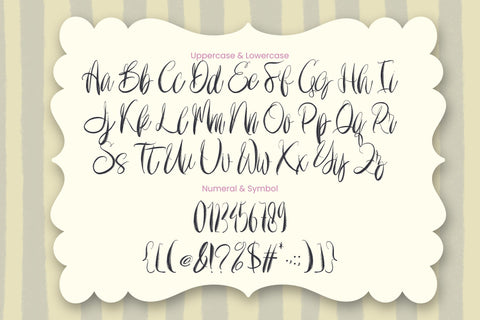 Uppercase & Lowercase
Aa Bb Cc Dd Ee Ff Gg Hh Ii
Jj Kk Ll Mm Nn Oo Pp Qq Rr
Ss Tt Uu Vv Ww Xx Yy Zz
Numeral & Symbol
0123456789
{[(@&!?%$#*.,:;)]}